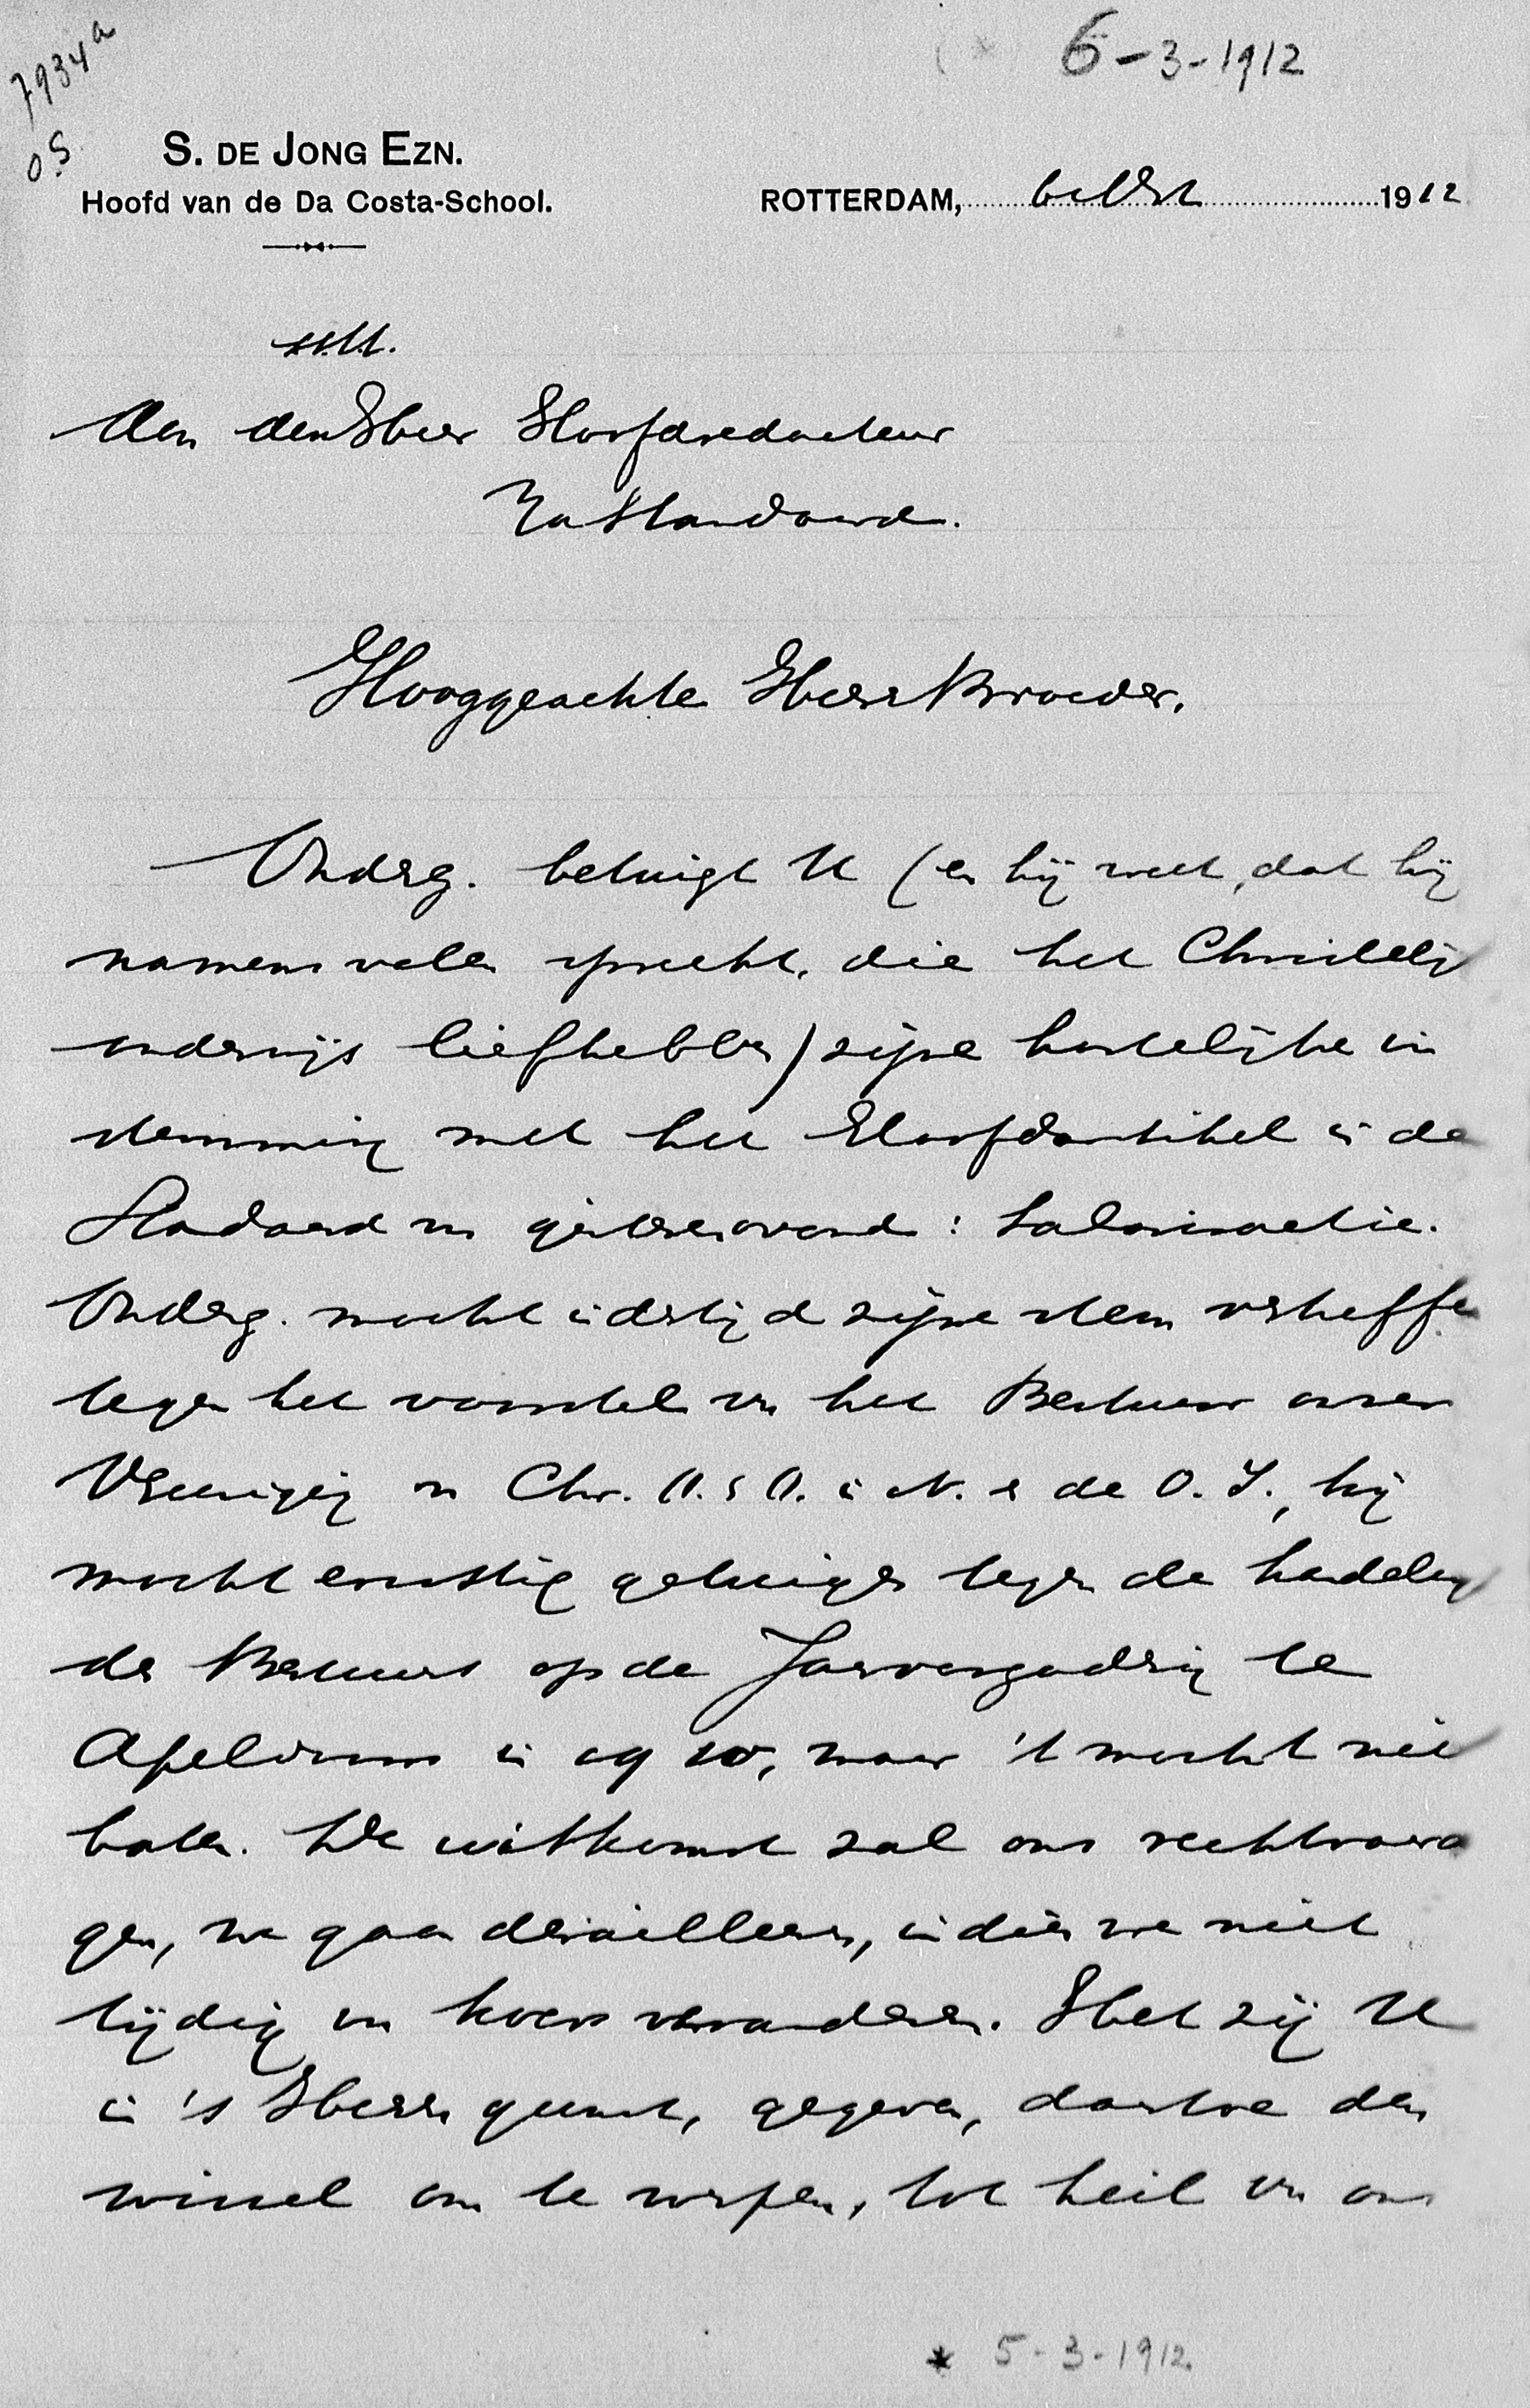 7934a
OS.
6-3-1912
S. DE JONG EZN.
Hoofd van de Da Costa-School.
ROTTERDAM, 6 Mrt 1912
Aan den Heer Hoofdredacteur
De Standaard.
Hooggeachte Heer & Broeder,
Onderg. betuigt U (en hij weet, dat hij
namens velen spreekt, die het Christelij
onderwijs liefhebben) zijne hartelijke in
stemming met het Hoofdartikel in de
Standaard van gisterenavond: Salarisactie.
Onderg. mocht indertijd zijne stem verheffen
tegen het voorstel van het Bestuur onzer
Vereeniging van Chr. O. & O. in N. en de O. I., hij
mocht ernstig getuigen tegen de handeling
des Bestuurs op de Jaarvergadering te
Apeldoorn in 1910, maar 't mocht niet
baten. De uitkomst zal ons rechtvaard
gen, we gaan derailleeren, indien we niet
tijdig van koers veranderen. Het zij U
in 's Heeren gunst, gegeven, daartoe den
wissel om te werpen, tot heil van ons
* 5-3-1912.